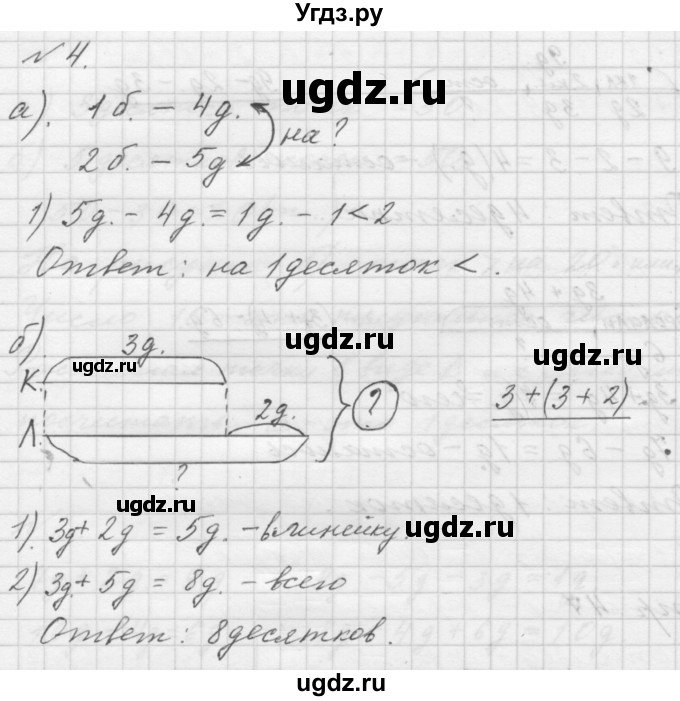 Угдз.ру
№ 4.
а). 1б. – 4д.
на?
2б. – 5д
1) 5д. – 4д. = 1д. – 1<2
Ответ: на 1десяток <.
б).
3д.
К.
2д.
Л.
?
?
3+(3+2)
1). 3д+2д = 5д. – в линейку.
2) 3д.+5д = 8д. – всего
Ответ: 8десятков.
ugdz.ru
ugdz.ru
ugdz.ru
ugdz.ru
ugdz.ru
ugdz.ru
ugdz.ru
ugdz.ru
ugdz.ru
ugdz.ru
ugdz.ru